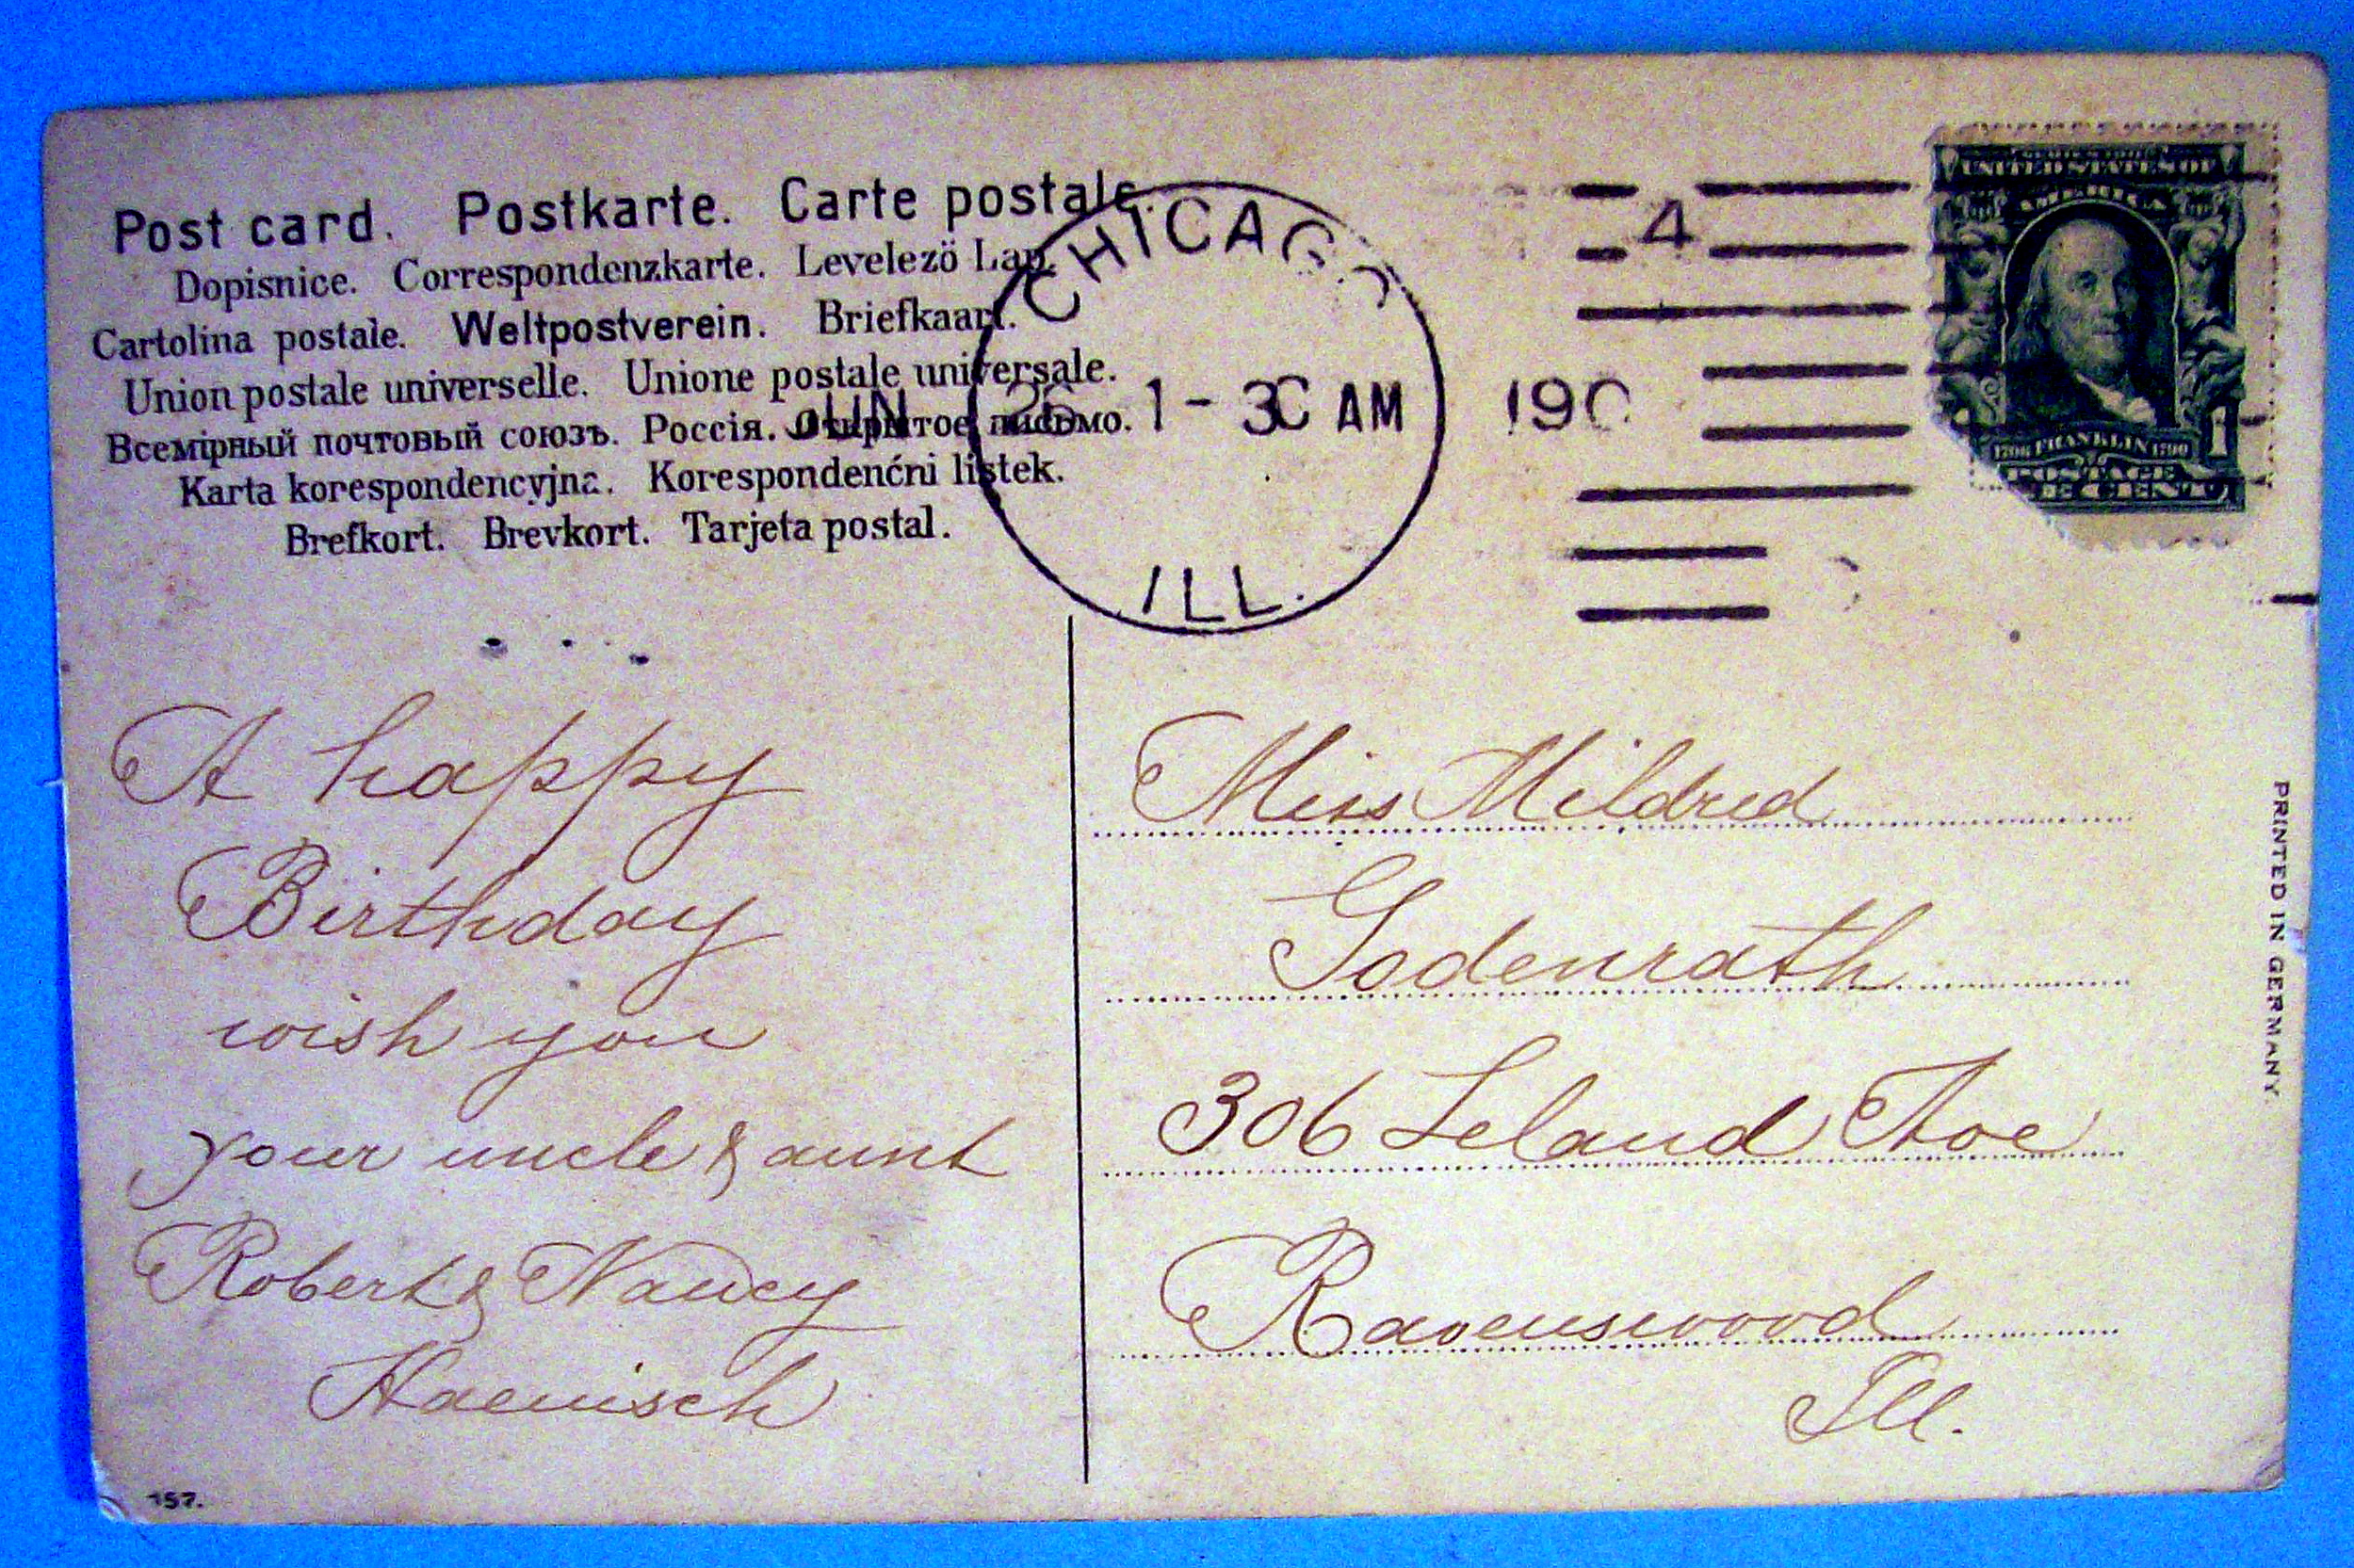 Post card. Postkarte. Carte postale.
Dopisnice. Correspondenzkarte. Levelezö Lap.
Cartolina postale. Weltpostverein. Briefkaart.
Union postale universelle. Unione postale universale.
Всемірный почтовый союзъ. Россія. Открытое письмо.
Karta korespondencyjna. Korespondenćni listek.
Brefkort. Brevkort. Tarjeta postal.
CHICAGO
JUN 26 1-30 AM 190
ILL.
4
UNITED STATES OF
AMERICA
1706 FRANKLIN 1790
POSTAGE
1
A happy
Birthday
wish you
your uncle & aunt
Robert & Nancy
Haenisch
Miss Mildred
Godenrath
306 Leland Ave
Ravenswood
Ill.
PRINTED IN GERMANY.
157.